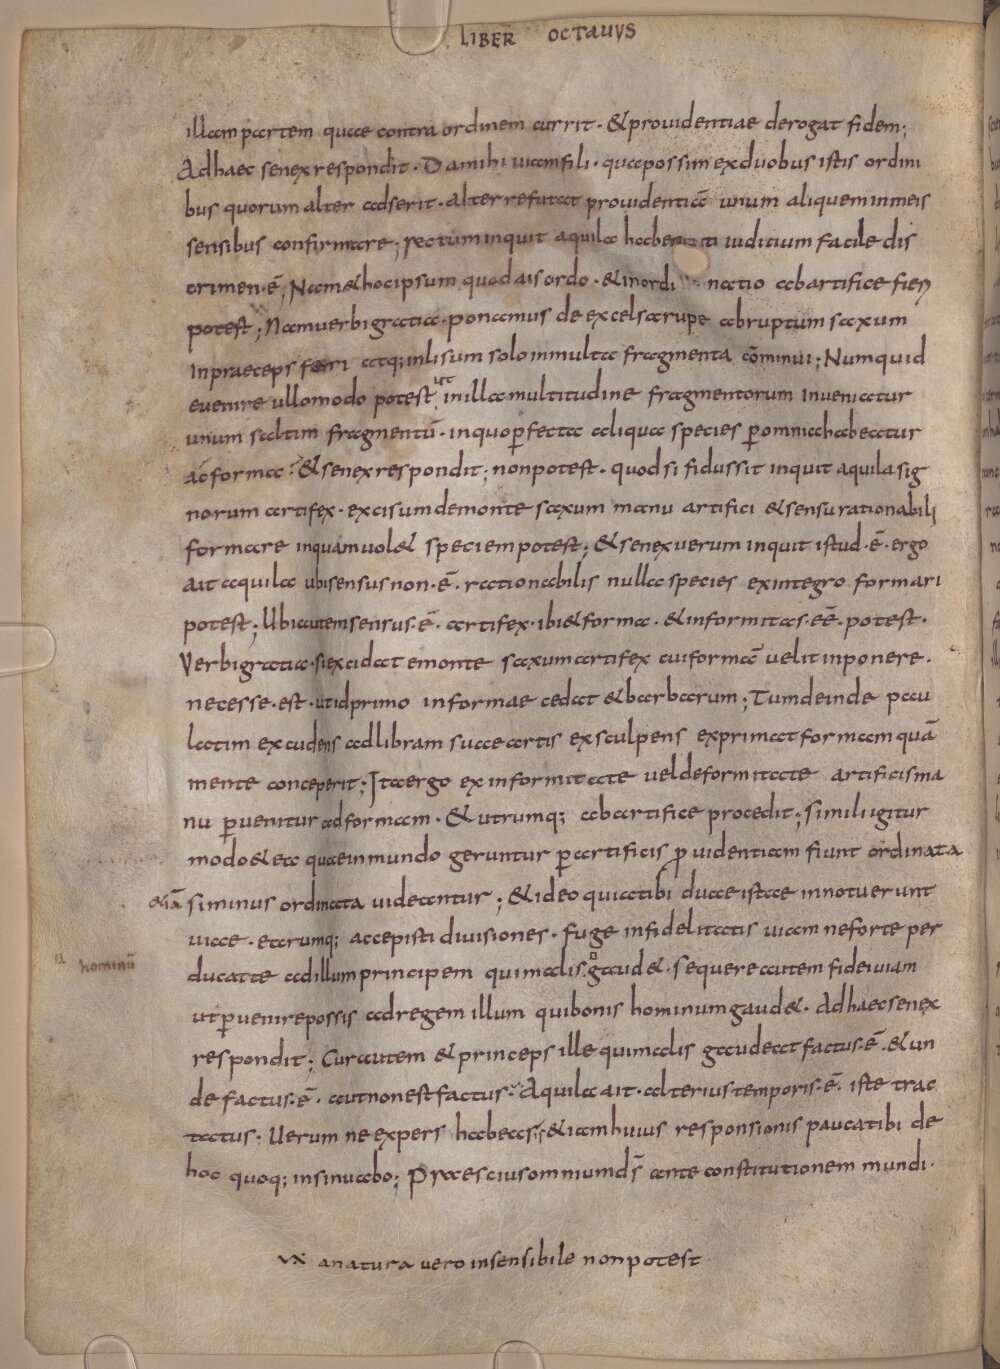 LIBER OCTAUUS
illam partem quae contra ordinem currit · & prouidentiae derogat fidem ;
Ad haec senex respondit · Da mihi uiam fili · qua possim ex duobus istis ordini
bus quorum alter adserit · alter refutat prouidentiā unum aliquem in meis
sensibus confirmare ; rectum inquit aquila habe ti iuditium facile dis
crimen · ē ; Nam & hoc ipsum quod ais ordo · & inordi natio ab artifice fieri
potest ; Nam uerbi gratia · ponamus de excelsa rupe abruptum saxum
in praeceps ferri atq; inlisum solo in multa fragmenta cōminui ; Numquid
euenire ullo modo potest ut in illa multitudine fragmentorum inueniatur
unum saltim fragmentū · in quo pfecta aliqua species p omnia habeatur
ac forma ? & senex respondit ; non potest · quod si fidus sit inquit aquila sig
norum artifex · excisum de monte saxum manu artifici & sensu rationabili
formare in quam uol& speciem potest ; & senex uerum inquit istud · ē · ergo
ait aquila ubi sensus non · ē · rationabilis nulla species ex integro formari
potest ; Ubi autem sensus · ē · artifex · ibi & forma · & informitas · eē · potest ·
Verbi gratia · si excidat e monte saxum artifex cui formā uelit inponere ·
necesse · est · ut id primo informae cedat & barbarum ; Tum deinde pau
latim excudens ad libram suae artis exsculpens exprimat formam quā
mente conceperit ; Ita ergo ex informitate uel deformitate artificis ma
nu puenitur ad formam · & utrumq; ab artifice procedit ; simili igitur
modo & ea quae in mundo geruntur p artificis puidentiam fiunt ordinata
&iā si minus ordinata uideantur ; & ideo quia tibi duae istae innotuerunt
uiae · earumq; accepisti diuisiones · fuge infidelitatis uiam ne forte per
hominū
ducat te ad illum principem qui malis gaud& · sequere autem fidei uiam
ut puenire possis ad regem illum qui bonis hominum gaud& · Ad haec senex
respondit ; Cur autem & princeps ille qui malis gaudeat factus · ē · & un
de factus · ē · aut non est factus ? Aquila ait · alterius temporis · ē · iste trac
tatus · Uerum ne expers habeasis & iam huius responsionis pauca tibi de
hoc quoq; insinuabo ; Praescius omnium d̄s ante constitutionem mundi ·
a natura uero insensibile non potest